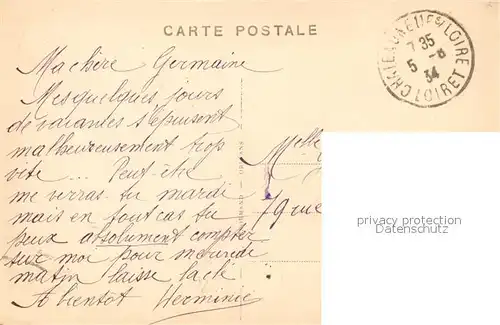 CARTE POSTALE
CHATEAUNEUF S/ LOIRE
7 35
5 -8
34
LOIRET
Ma chère Germaine
Mes quelques jours
de vacances s'épuisent
malheureusement trop
vite ... Peut-être
me verras-tu mardi
mais en tout cas tu
peux absolument compter
sur moi pour mercredi
matin laisse la clé
A bientôt Herminie
Melle
79 rue
privacy protection
Datenschutz